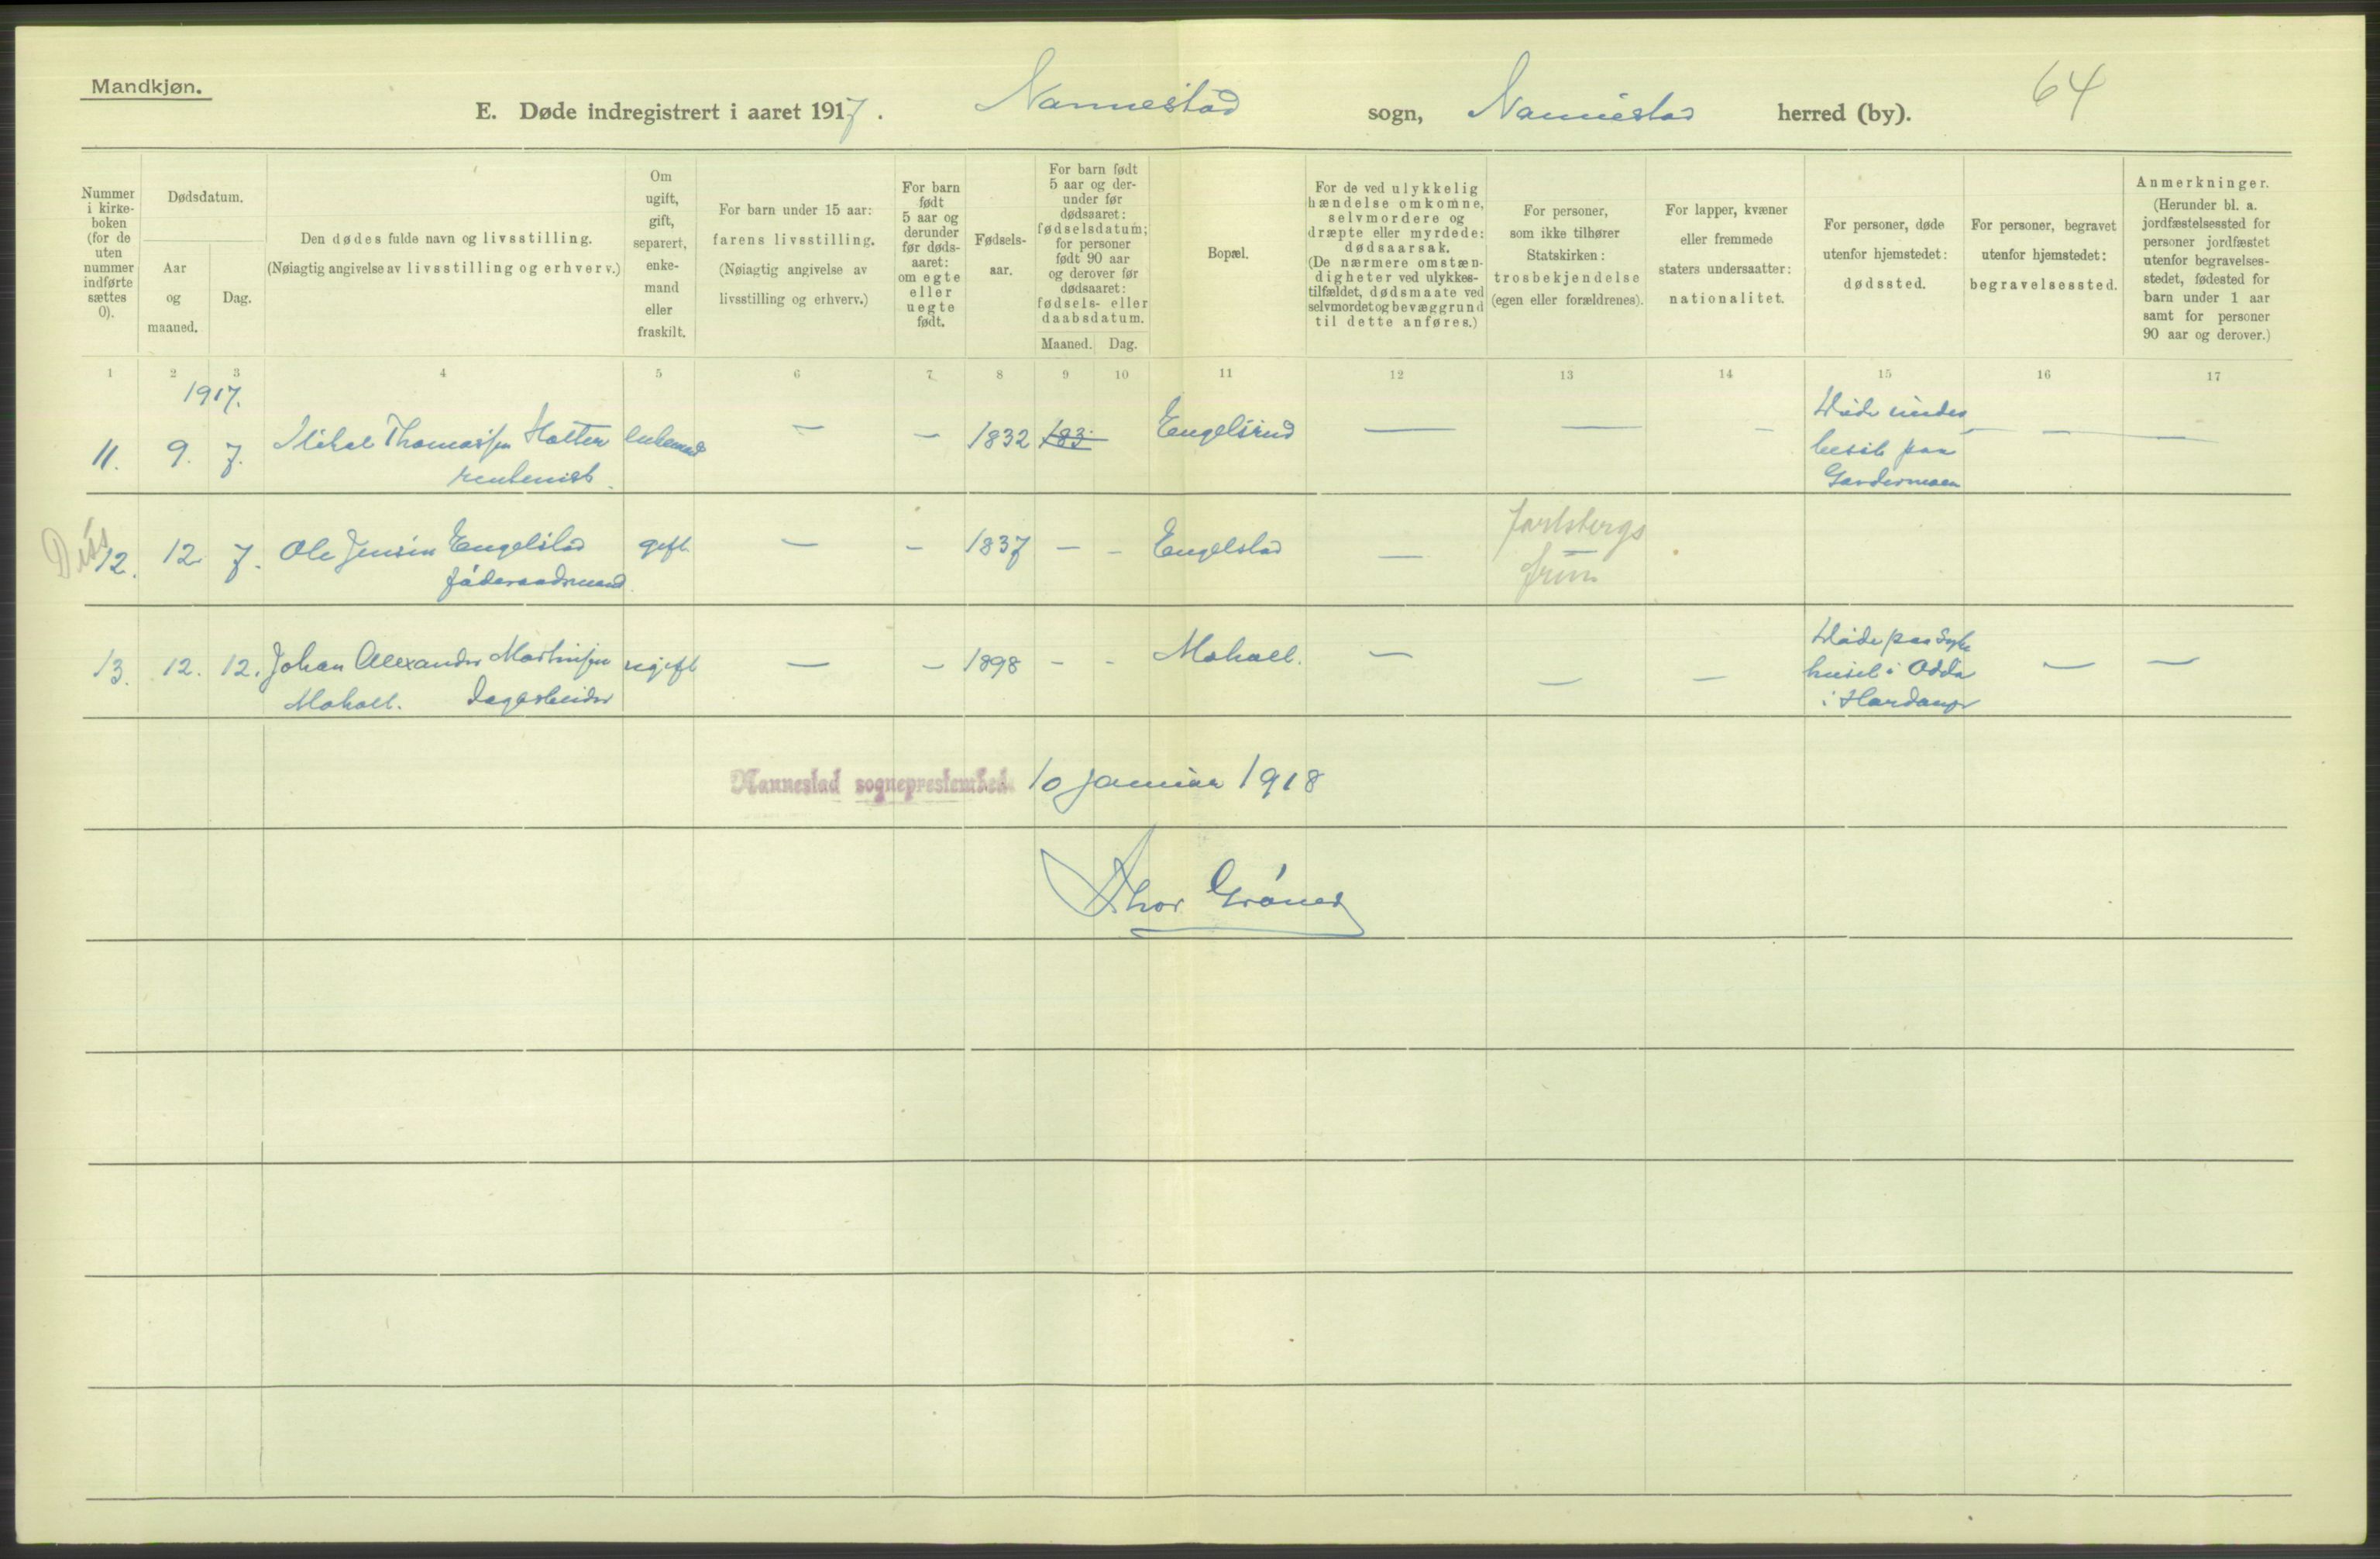 Mandkjøn.
E. Døde indregistrert i aaret 1917. Nannestad sogn, Nannestad herred (by). 64
Nummer i kirke-boken (for de uten nummer indførte sættes 0).
Dødsdatum.
Aar og maaned.
Dag.
Den dødes fulde navn og livsstilling.
(Nøiagtig angivelse av livsstilling og erhverv.)
Om ugift, gift, separert, enke-mand eller fraskilt.
For barn under 15 aar: farens livsstilling. (Nøiagtig angivelse av livsstilling og erhverv.)
For barn født 5 aar og derunder før døds-aaret: om egte eller uegte født.
Fødsels-aar.
For barn født 5 aar og der-under før dødsaaret: fødselsdatum; for personer født 90 aar og derover før dødsaaret: fødsels- eller daabsdatum.
Maaned. Dag.
Bopæl.
For de ved ulykkelig hændelse omkomne, selvmordere og dræpte eller myrdede: dødsaarsak. (De nærmere omstæn-digheter ved ulykkes-tilfældet, dødsmaate ved selvmordet og bevæggrund til dette anføres.)
For personer, som ikke tilhører Statskirken: trosbekjendelse (egen eller forældrenes).
For lapper, kvæner eller fremmede staters undersaatter: nationalitet.
For personer, døde utenfor hjemstedet: dødssted.
For personer, begravet utenfor hjemstedet: begravelsessted.
Anmerkninger. (Herunder bl. a. jordfæstelsessted for personer jordfæstet utenfor begravelses-stedet, fødested for barn under 1 aar samt for personer 90 aar og derover.)
1 2 3 4 5 6 7 8 9 10 11 12 13 14 15 16 17
1917.
11. 9. 7. Mikal Thomassen Holter enkemand — — 1832 183 Engelsrud — — — Døde under — —
rentenist. besøk paa
Gardermoen
Diss
12. 12 7. Ole Jensen Engelstad gift — — 1837 — — Engelstad — Jarlsbergs
føderaadsmand frim
13. 12. 12. Johan Alexander Martinsen ugift — — 1898 - - Moholt. — — — Døde paa Syke — —
Moholt. Dagarbeider huset i Odda
i Hardanger
Nannestad sogneprestembede 10 januar 1918
Thor Grøner